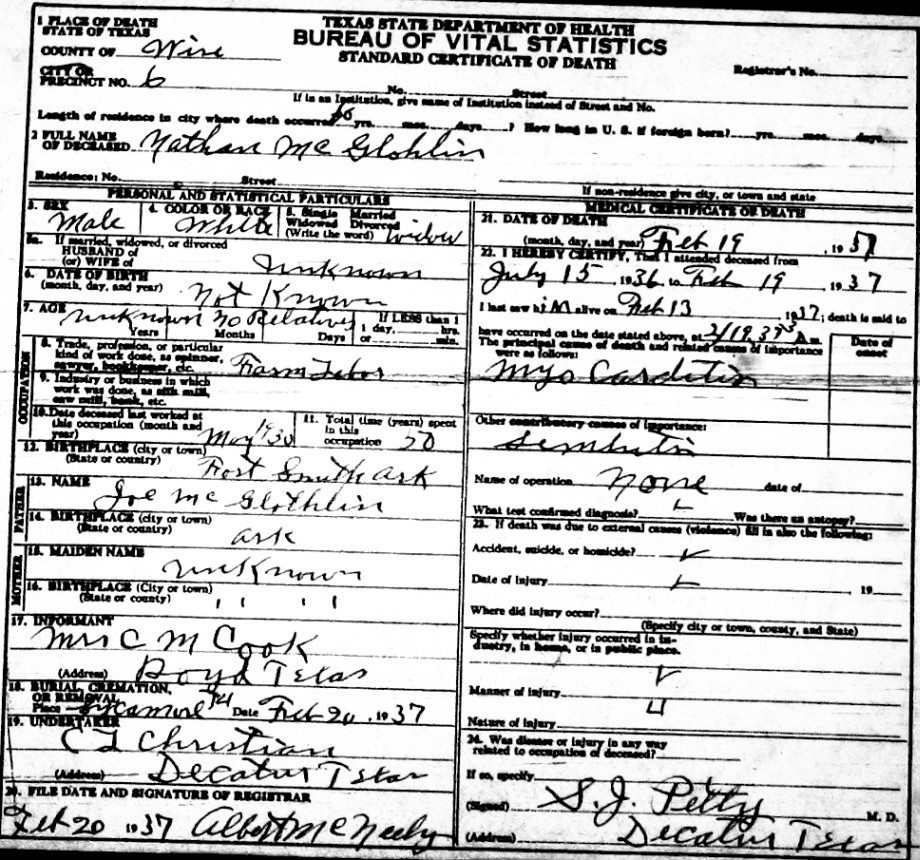 TEXAS STATE DEPARTMENT OF HEALTH
BUREAU OF VITAL STATISTICS
STANDARD CERTIFICATE OF DEATH
1 PLACE OF DEATH
STATE OF TEXAS
COUNTY OF Wise
Registrar's No.
CITY OR
PRECINCT NO. 6
No. Street
If in an Institution, give name of Institution instead of Street and No.
Length of residence in city where death occurred yrs. mos. days. ? How long in U. S. if foreign born? yrs. mos. days
2 FULL NAME
OF DECEASED Nathan Mc Glohlin
Residence: No. Street
If non-residence give city, or town and state
PERSONAL AND STATISTICAL PARTICULARS
3. SEX Male
4. COLOR OR RACE White
5. Single Married
Widowed Divorced
(Write the word) widow
5a. If married, widowed, or divorced
HUSBAND of
(or) WIFE of unknown
6. DATE OF BIRTH
(month, day, and year) Not Known
7. AGE unknown no Relatives
Years Months Days
If LESS than 1
1 day, hrs.
or min.
OCCUPATION
8. Trade, profession, or particular
kind of work done, as spinner,
sawyer, bookkeeper, etc. Farm Labor
9. Industry or business in which
work was done, as silk mill,
saw mill, bank, etc.
10. Date deceased last worked at
this occupation (month and
year) May 1930
11. Total time (years) spent
in this
occupation 50
12. BIRTHPLACE (city or town)
(State or country) Fort Smith Ark
FATHER
13. NAME
Joe Mc Glothlin
14. BIRTHPLACE (city or town)
(State or country) ark
MOTHER
15. MAIDEN NAME
unknown
16. BIRTHPLACE (City or town)
(State or county) " "
17. INFORMANT
Mrs C M Cook
(Address) Boyd Texas
18. BURIAL, CREMATION,
OR REMOVAL
Place Sycamore Date Feb 20, 1937
19. UNDERTAKER
C L Christian
(Address) Decatur Texas
20. FILE DATE AND SIGNATURE OF REGISTRAR
Feb 20 1937 Albert McNeely
MEDICAL CERTIFICATE OF DEATH
21. DATE OF DEATH
(month, day, and year) Feb 19 1937
22. I HEREBY CERTIFY, That I attended deceased from
July 15, 1936, to Feb 19, 1937
I last saw him alive on Feb 13 1937; death is said to
have occurred on the date stated above, at 2/19 37 3 A.m.
The principal cause of death and related causes of importance
were as follows:
Date of
onset
Myo Carditis
Other contributory causes of importance:
Name of operation None date of
What test confirmed diagnosis? Was there an autopsy?
23. If death was due to external causes (violence) fill in also the following:
Accident, suicide, or homicide?
Date of injury , 19
Where did injury occur?
(Specify city or town, county, and State)
Specify whether injury occurred in in-
dustry, in home, or in public place.
Manner of injury
Nature of injury
24. Was disease or injury in any way
related to occupation of deceased?
If so, specify
(Signed) S.J. Petty M. D.
(Address) Decatur Texas